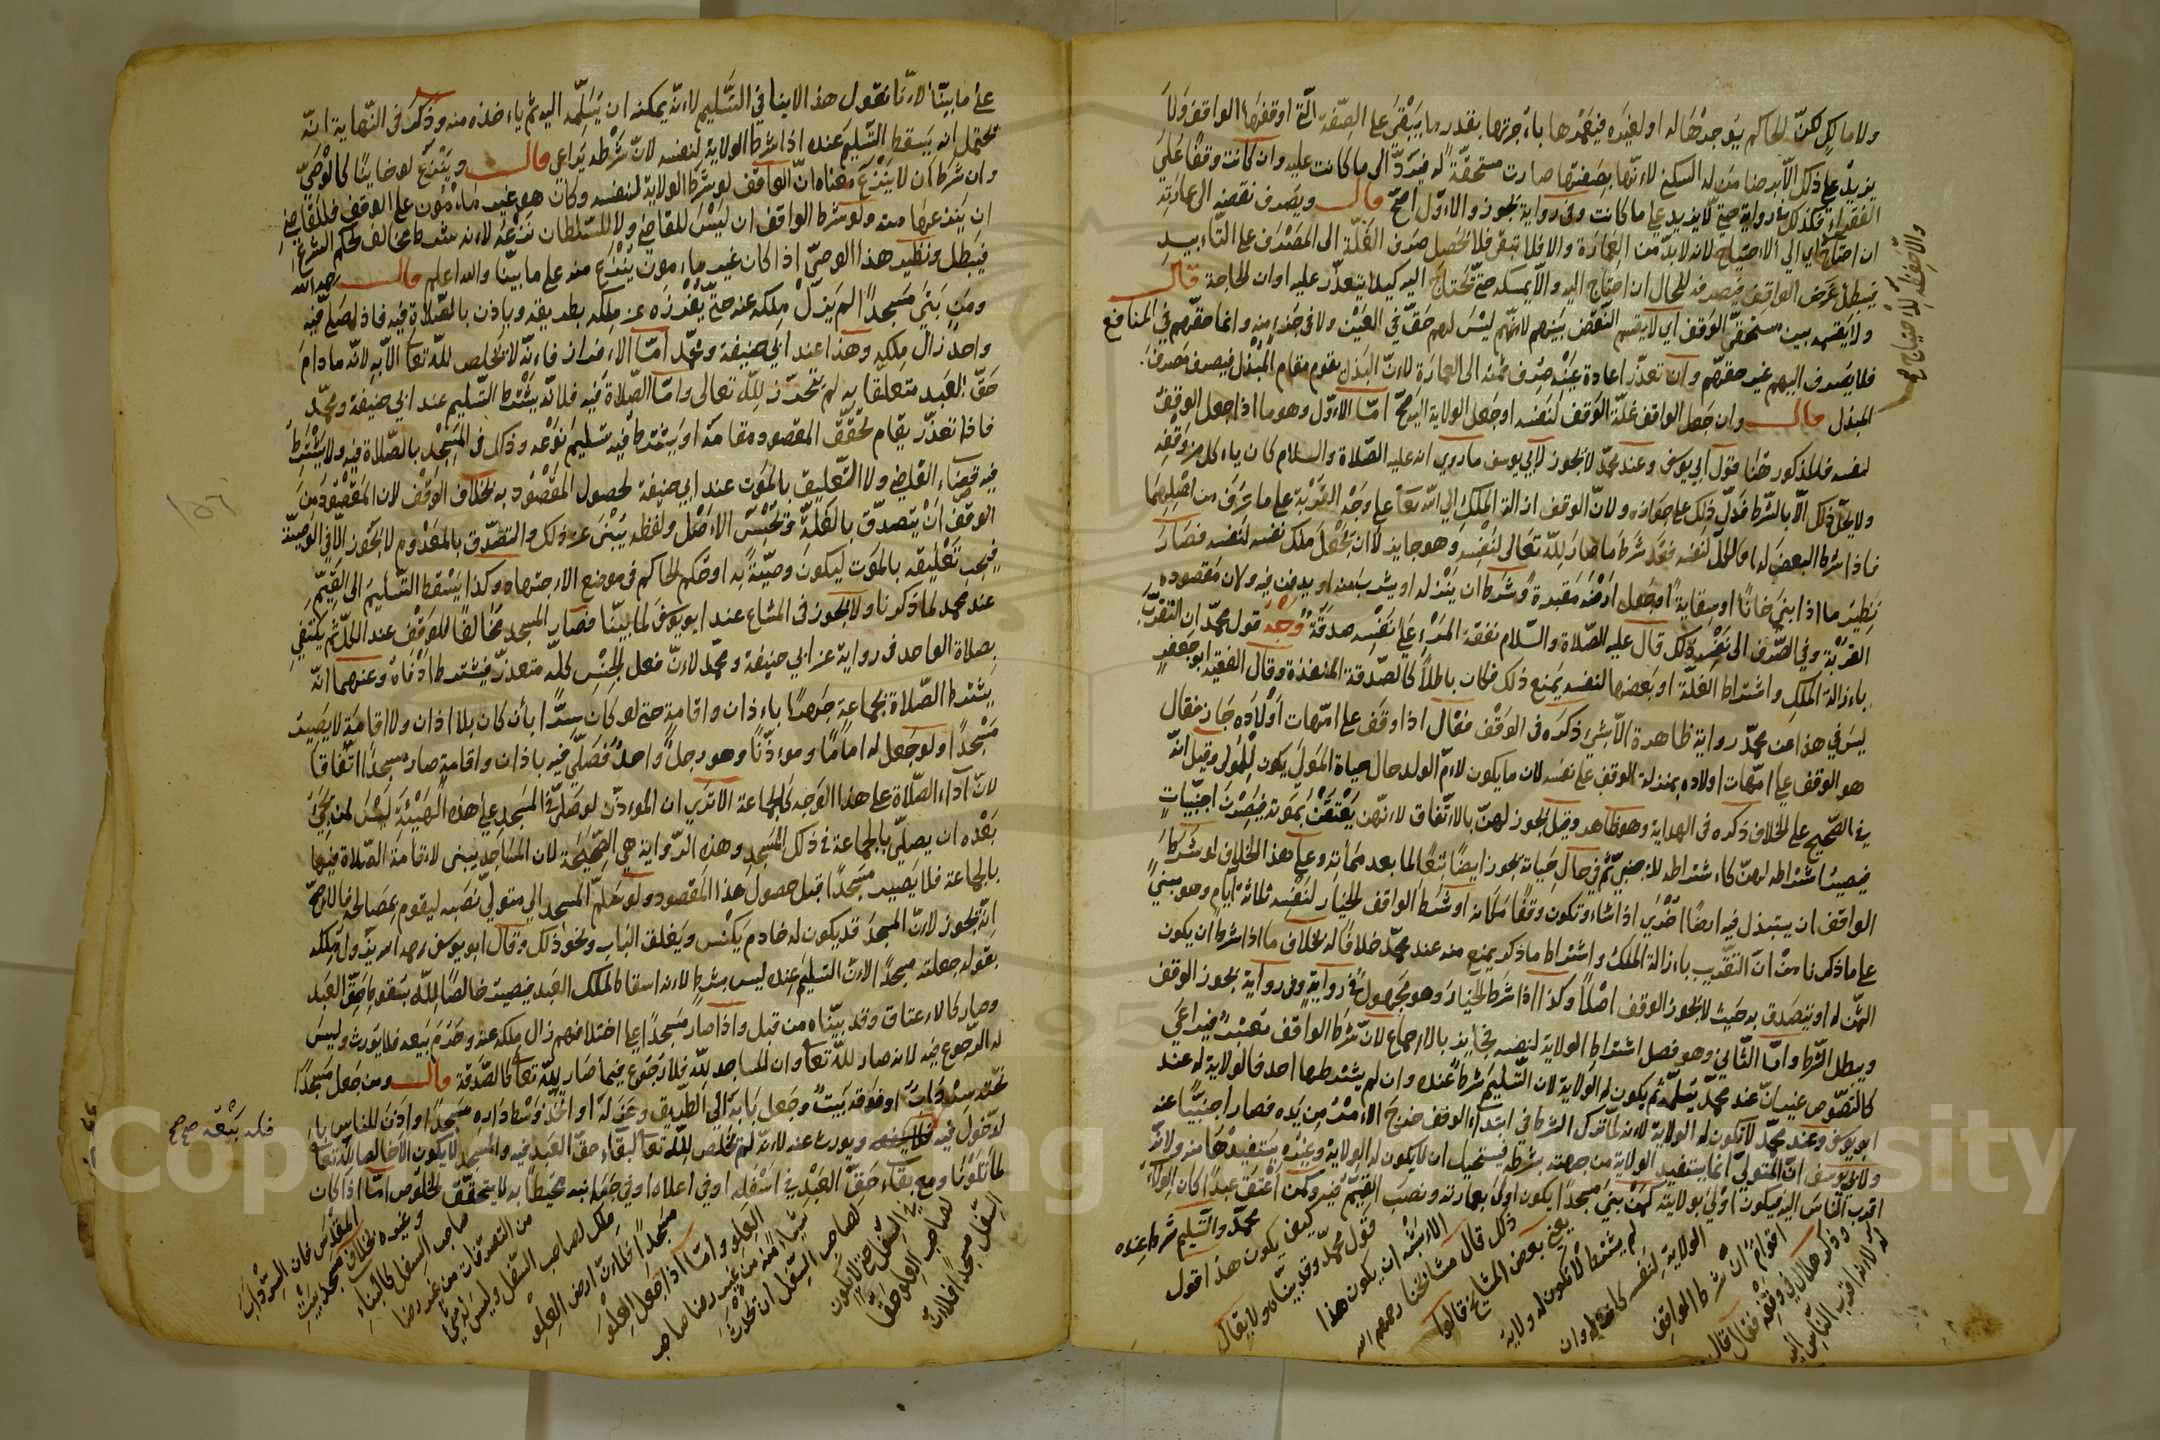 ولا مالك لكنّ الحاكم يوجرها له او لغيره فيعمرها باءجرتها بقدر ما يبقى على الصفة التي اوقفها الواقف ولا
يزيد على ذلك الّا برضا من له السكنى لاءنّها بصفتها صارت مستحقّة له فيردّ الى ما كانت عليه وان كانت وقفا على
الفقراء فكذلك في رواية حتى لا يزيد على ما كانت وفى رواية يجوز والاوّل اصحّ قال ويصرف نقضه الى عمارته
ان احتاج اي الى الاحتياج لانه لا بدّ من العمارة والا فلا تبقى فلا يحصل صرف الغلّة الى المصرف على التاءبيد
فيبطل غرض الواقف فيصرفه للحال ان احتاج اليه والّا يمسكه حتّى يحتاج اليه كيلا يتعذّر عليه اوان الحاجة قال
والّا حفظه للاحتياج صح
ولا يقسمه بين مستحقّي الوقف اي لا يقسم النقض بينهم لانّهم ليس لهم حقّ في العين ولا في جزء منه وانما حقّهم في المنافع
فلا يصرف اليهم غير حقّهم وان تعذّر اعادة عينه صرف ثمنه الى العمارة لاءنّ البدل يقوم مقام المبدل فيصرف مصرف
المبدل قال وان جعل الواقف غلّة الوقف لنفسه او جعل الولاية اليه صحّ امّا الاءوّل وهو ما اذا جعل الوقف
لنفسه فالمذكور هنا قول ابي يوسف وعند محمّد لا يجوز لابي يوسف ما روي انه عليه الصّلاة والسلام كان ياءكل من وقفه
ولا يحلّ ذلك الّا بالشّرط فدلّ ذلك على جوازه ولانّ الوقف ازالة الملك الى الله تعا على وجه القربة على ما عرف من اصلهما
فاذا شرط البعض له او الكلّ لنفسه فقد شرط ما صار لله تعالى لنفسه وهو جايز لا ان يجعل ملك نفسه لنفسه فصار
نظير ما اذا ابنى خانا او سقاية او جعل ارضه مقبرة وشرط ان ينزله او يشرب منه او يدفن فيه ولان مقصوده
القربة وفي الصّرف الى نفسه ذلك قال عليه الصّلاة والسّلام نفقة المرء على نفسه صدقة وجه قول محمّد ان التقرّب
باءزالة الملك واشتراط الغلّة او بعضها لنفسه يمنع ذلك فكان باطلا كالصّدقة المنفذة وقال الفقيه ابو جعفر
ليس في هذا عن محمّد رواية ظاهرة الّا شيء ذكره في الوقف فقال اذا وقف على امّهات اولاده جاز فقال
هو الوقف على امّهات اولاده بمنزلة الوقف على نفسه لان ما يكون لاءمّ الولد حال حياة المولى يكون للمولى وقيل انّه
في الصّحيح على الخلاف ذكره فى الهداية وهو ظاهر وقيل يجوز لهنّ بالاءتّفاق لاءنّهن يعتقن بموته فيصرن اجنبيّات
فيصير اشتراطه لهنّ كاءشتراطه لاءجنبيّ ثم في حال حياته يجوز ايضا تبعا لما بعد مماته وعلى هذا الخلاف لو شرط
الواقف ان يستبدل فيه ارضا اخرى اذا شاء وتكون وقفا مكانه او شرط الواقف الخيار لنفسه ثلاثة ايّام وهو مبنيّ
على ما ذكرنا من انّ التقرّب باءزالة الملك واشتراط ما ذكر يمنع منه عند محمّد خلافا له بخلاف ما اذا شرط ان يكون
الثمن له او يتصدّق به حيث لا يجوز الوقف اصلا وكذا اذا شرط الخيار وهو مجهول في رواية وفى رواية يجوز الوقف
ويبطل الشّرط وامّا الثّاني وهو فصل اشتراط الولاية لنفسه فجايز بالاءجماع لانّ شرط الواقف معتبر فيراعى
كالنصّوص غير انّ عند محمّد يسلّمه ثم يكون له الولاية لان التّسليم شرط عنده وان لم يشترطها احد فالولاية له عند
ابو يوسف وعند محمّد لا تكون له الولاية لاءنه لمّا ترك الشرط في ابتداء الوقف خرج الاءمر من يده فصار اجنبيّا عنه
ولابي يوسف انّ المتولّى انّما يستفيد الولاية من جهته بشرطه فيستحيل ان لا يكون له الولاية وغيره يستفيدها منه ولانّه
اقرب النّاس اليه فيكون اولى بولايته كمن بنى مسجدا يكون اولى بعمارته ونصب القيّم فيه وكمن اعتق عبدا كان الولاء
له لاءنه اقرب النّاس اليه
وذكر هلال في وقفه فقال قال
اقوام ان شرط الواقف
الولاية لنفسه كانت له وان
لم يشترط لا تكون له ولاية
يعني بعض المشايخ قالوا
ذلك قال مشايخنا رحمهم الله
الاءشبه ان يكون هذا
قول محمّد وقد بيّناه ولا يقال
كيف يكون هذا قول
محمّد والتّسليم شرط عنده
على ما بيّنا لاءنّا نقول هذا لا ينافي التّسليم لاءنّه يمكنه ان يسلّمه اليه ثم ياءخذه منه وذكر فى النّهاية انّه
يحتمل انه يسقط التّسليم عنده اذا شرط الولاية لنفسه لانّ شرطه يراعى قال وينزع لو خاينا كالوصيّ
وان شرط ان لا ينزع معناه انّ الواقف لو شرط الولاية لنفسه وكان هو غير ماءمون على الوقف فللقاضي
ان ينزعها منه ولو شرط الواقف ان ليس للقاضي ولا للسّلطان نزعه لاءنه شرط مخالف لحكم الشرع
فيبطل ونظير هذا الوصيّ اذا كان غير ماءمون ينزع منه على ما بيّنا والله اعلم قال رحمه الله
ومن بنى مسجدا لم يزل ملكه عنه حتّى يفرزه عن ملكه بطريقه وياذن بالصّلاة فيه فاذا صلّى فيه
واحد زال ملكه وهذا عند ابي حنيفة ومحمّد امّا الاءفراز فاءنّه لا يخلص لله تعا الّا به لانّه ما دام
حقّ العبد متعلّقا به لم يتحرّر لله تعالى وامّا الصّلاة فيه فلانّه يشترط التّسليم عند ابي حنيفة ومحمّد
فاذا تعذّر يقام تحقّق المقصود مقامه او يشترط فيه تسليم نوعه وذلك فى المسجد بالصّلاة فيه ولا يشترط
فيه قضاء القاضي ولا التّعليق بالموت عند ابي حنيفة لحصول المقصود به بخلاف الوقف لان المقصود من
الوقف ان يتصدّق بالغلّة وتحبس الاءصل ولفظه يبنى عن ذلك والتصدّق بالمعدوم لا يجوز الّا في الوصيّة
فيجب تعليقه بالموت ليكون وصيّة به او حكم الحاكم فى موضع الاءجتهاد وكذا يشترط التّسليم الى القيّم
عند محمد لما ذكرنا ولا يجوز فى المشاع عند ابو يوسف لما بيّنا فصار المسجد مخالفا للوقف عند الكلّ ثم يكتفي
بصلاة الواحد فى رواية عن ابي حنيفة ومحمّد لاءنّ فعل الجنس كلّه متعذّر فيشترط ادناه وعنهما انّه
يشترط الصّلاة بجماعة جهرا باءذان واقامة حتى لو كان سرّا بأن كان بلا اذان ولا اقامة لا يصير
مسجدا ولو جعل له اماما وموءذّنا وهو رجل واحد فصلّى فيه باذان واقامة صار مسجدا اتّفاقا
لانّ اداء الصّلاة على هذا الوجه كالجماعة الا ترى ان الموءذّن لو صلّى في المسجد على هذه الهيئة ليس لمن يجيء
بعده ان يصلّي بالجماعة في ذلك المسجد وهذه الرّواية هي الصّحيحة لان المساجد يبنى لاءقامة الصّلاة فيها
بالجماعة فلا يصير مسجدا قبل حصول هذا المقصود ولو سلّم المسجد الى متولّي نصبه ليقوم بمصالحه فالاءصحّ
انّه يجوز لاءنّ المسجد قد يكون له خادم يكنس ويغلق الباب ونحو ذلك وقال ابو يوسف رحمه الله يزول ملكه
بقوله جعلته مسجدا لاءنّ التسليم عنده ليس بشرط لاءنه اسقاط لملك العبد فيصير خالصا لله بسقوط حقّ العبد
وصار كالاءعتاق وقد بيّنّاه من قبل واذا صار مسجدا على اختلافهم زال ملكه عنه وحرم بيعه فلا يورث وليس
له الرّجوع فيه لانه صار لله تعا وان المساجد لله فلا رجوع فيما صار لله تعا كالصّدقة قال ومن جعل مسجدا
تحته سرداب او فوقه بيت وجعل بابه الى الطّريق وعزله او اتّخذ وسط داره مسجدا واذن للناس باء
لدّخول فيه ويورث عنه لاءنه لم يخلص لله تعا لبقاء حقّ العبد فيه والمسجد لا يكون الّا خالصا لله تعا
فله بيعه صح صح
لما تلونا ومع بقاء حقّ العبد في اسفله او في اعلاه او في جوانبه محيطا به لا يتحقّق الخلوص امّا اذا كان
السّفل مسجدا فلانّ
لصاحب العلو حقّا
في السّفل حتى لا يكون
لصاحب السّفل ان يحدث
شيئا فيه من غير رضا صاحب
العلو وامّا اذا جعل العلو
مسجدا فلاءنّ ارض العلو
ملك لصاحب السّفل وليس له شيء
من التصرّفات من غير رضا
صاحب السّفل كالبناء
وغيره بخلاف مسجد بيت
المقدّس فان السّرداب